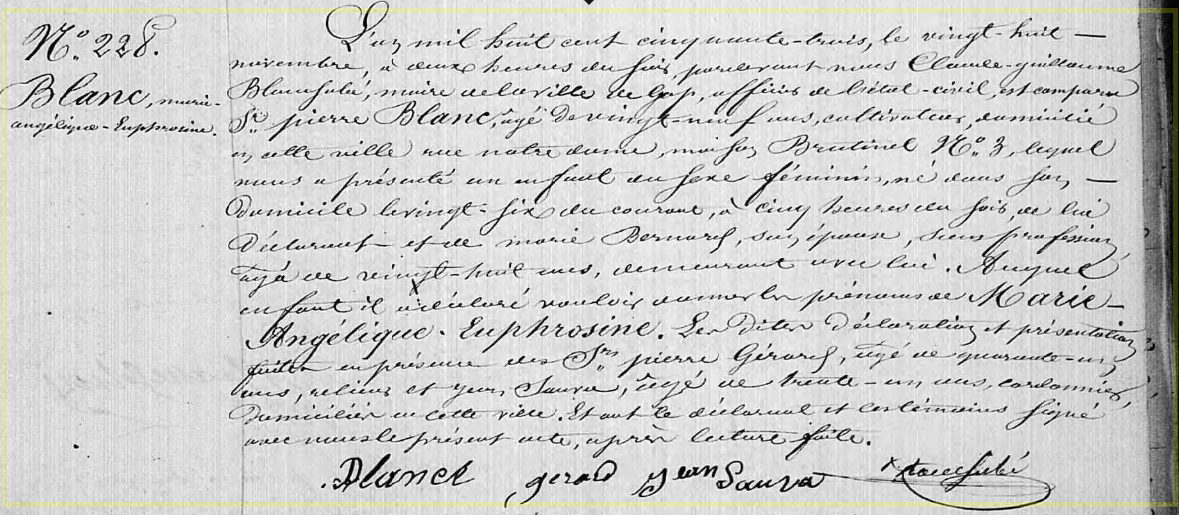 N.° 228.
Blanc, marie-
angélique-Euphrosine.
L'an mil huit cent cinquante-trois, le vingt-huit —
novembre, à deux heures du soir, pardevant nous Claude-guillaume
maire de la ville de Gap, officier de l'état-civil, est comparu
S.r pierre Blanc, âgé de vingt-neuf ans, cultivateur, domicilié
en cette ville rue notre dame, maison Brutinel N.° 3, lequel
nous a présenté un enfant du sexe féminin, né dans son —
domicile le vingt-six du courant, à cinq heures du soir, de lui
déclarant et de marie Bernard, son épouse, sans profession,
âgé de vingt-huit ans, demeurant avec lui. Auquel
enfant il a déclaré vouloir donner les prénoms de Marie-
Angélique-Euphrosine. Les dites déclaration et présentation
faites en présence des S.rs pierre Gérard, âgé de quarante-un
ans, relieur et jean Sauva, âgé de trente-un ans, cordonnier,
domiciliés en cette ville. Et ont le déclarant et les témoins signé
avec nous le présent acte, après lecture faite.
Blanc gerard jean Sauva